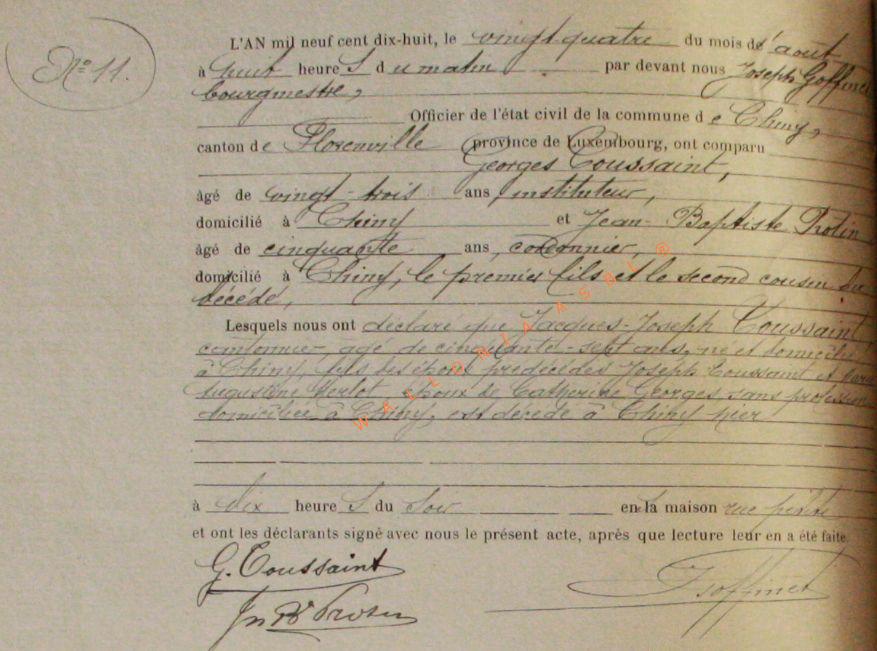 N° 11.
L'AN mil neuf cent dix-huit, le vingt-quatre du mois d'août
à huit heures du matin par devant nous Joseph Goffinet
bourgmestre,
Officier de l'état civil de la commune de Chiny,
canton de Florenville province de Luxembourg, ont comparu
Georges Toussaint,
âgé de vingt-trois ans, instituteur,
domicilié à Chiny et Jean-Baptiste
âgé de cinquante ans, cordonnier,
domicilié à Chiny, le premier fils et le second cousin du
décédé,
Lesquels nous ont déclaré que Jacques-Joseph Toussaint
cantonnier, agé de cinquante-sept ans, né et domicilié
à Chiny, fils des époux prédécédés Joseph Toussaint et
Augustine époux de Catherine Georges sans profession
domiciliée à Chiny, est décédé à Chiny hier
à dix heures du soir en sa maison rue
et ont les déclarants signé avec nous le présent acte, après que lecture leur en a été faite.
G. Toussaint
J Goffinet
Jn Bte
WALLONIA ASBL ®